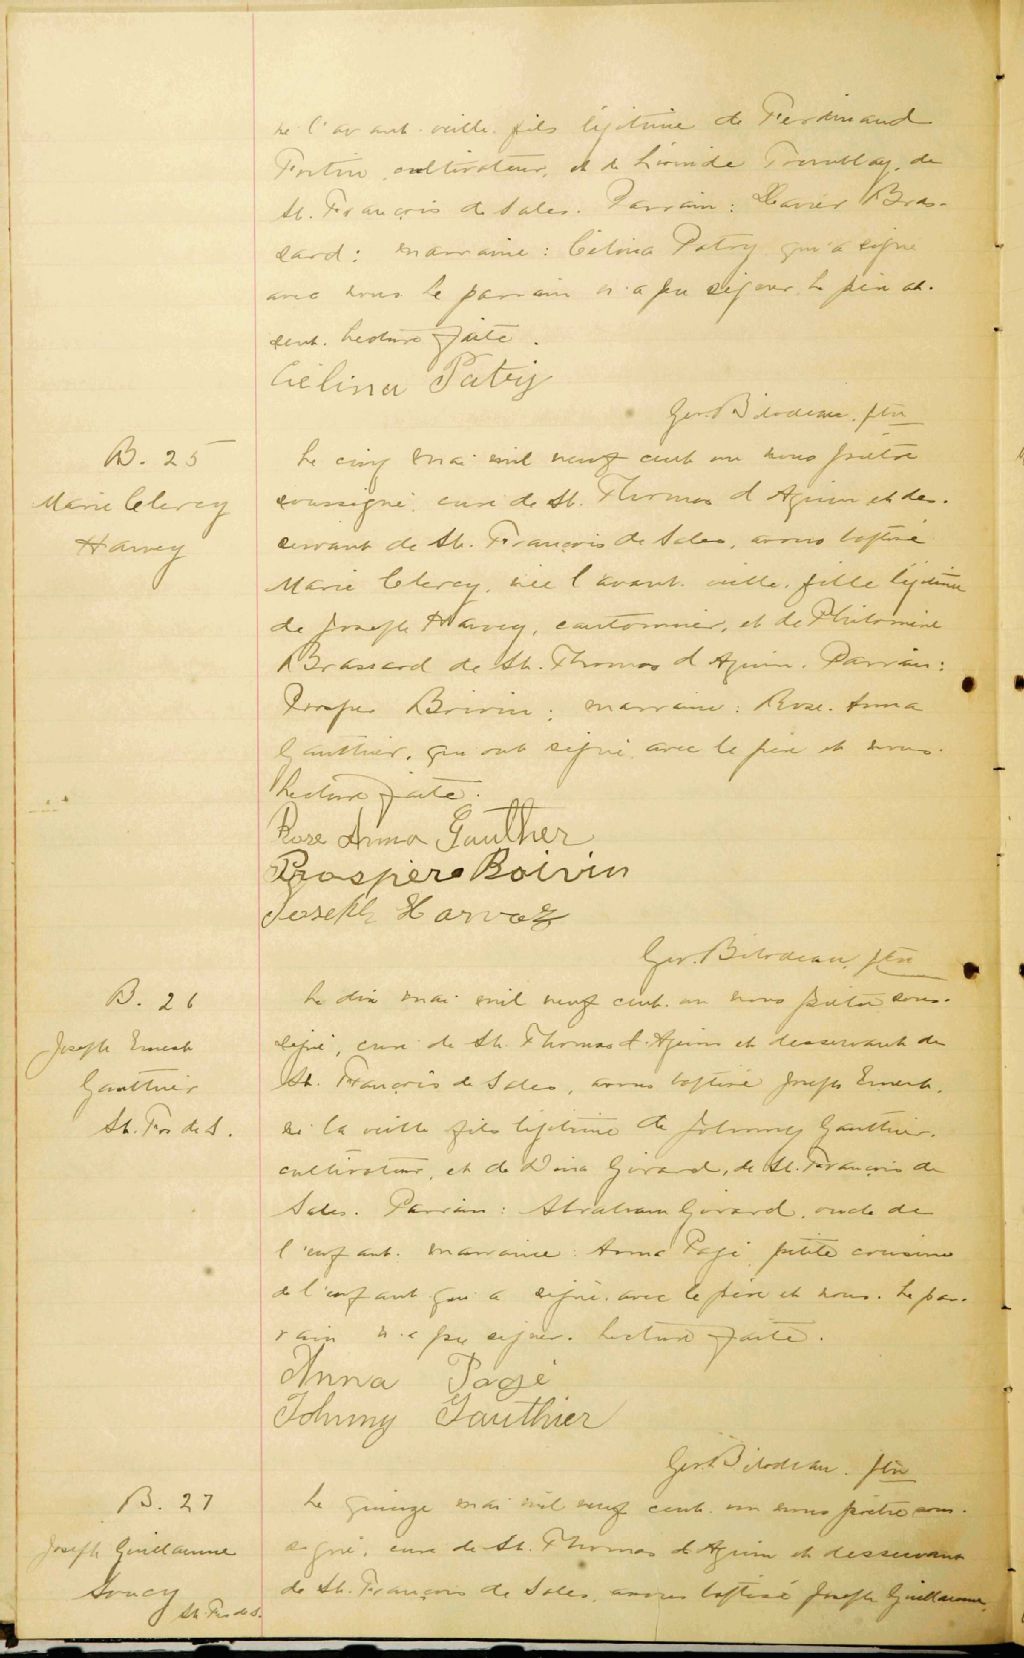 né l'avant-veille, fils légitime de Ferdinand
Fortin, cultivateur, et de Tremblay, de
St. François de Sales. Parrain: Xavier Bras-
sard; marraine: Célina Patry qui a signé
avec nous. Le parrain n'a pu signer. Le père ab-
sent. Lecture faite.
Célina Patry
Geo. Bilodeau, ptre
B. 25
Marie Clercy
Harvey
Le cinq mai mil neuf cent un nous prêtre
soussigné, curé de St. Thomas d'Aquin et des-
servant de St. François de Sales, avons baptisé
Marie Clercy, née l'avant-veille, fille légitime
de Joseph Harvey, cantonnier, et de Philomène
Brassard de St. Thomas d'Aquin. Parrain:
Prosper Boivin; marraine: Rose-Anna
Gauthier, qui ont signé avec le père et nous.
Lecture faite.
Rose Anna Gauther
Prospère Boivin
Joseph Harvez
Geo. Bilodeau, ptre
B. 26
Joseph Ernest
Gauthier
St. Frs de S.
Le dix mai mil neuf cent un nous prêtre sous-
signé, curé de St. Thomas d'Aquin et desservant de
St. François de Sales, avons baptisé Joseph Ernest,
né la veille fils légitime de Johnny Gauthier,
cultivateur, et de Girard, de St. François de
Sales. Parrain: Abraham Girard, oncle de
l'enfant. marraine: Anna Pagé, petite cousine
de l'enfant qui a signé avec le père et nous. Le par-
rain n'a pu signer. Lecture faite.
Anna Pagé
Johnny Gauthier
Geo. Bilodeau, ptre
B. 27
Joseph Guillaume
Soucy
St. Frs de S.
Le quinze mai mil neuf cent un nous prêtre sous-
signé, curé de St. Thomas d'Aquin et desservant
de St. François de Sales, avons baptisé Joseph Guillaume,